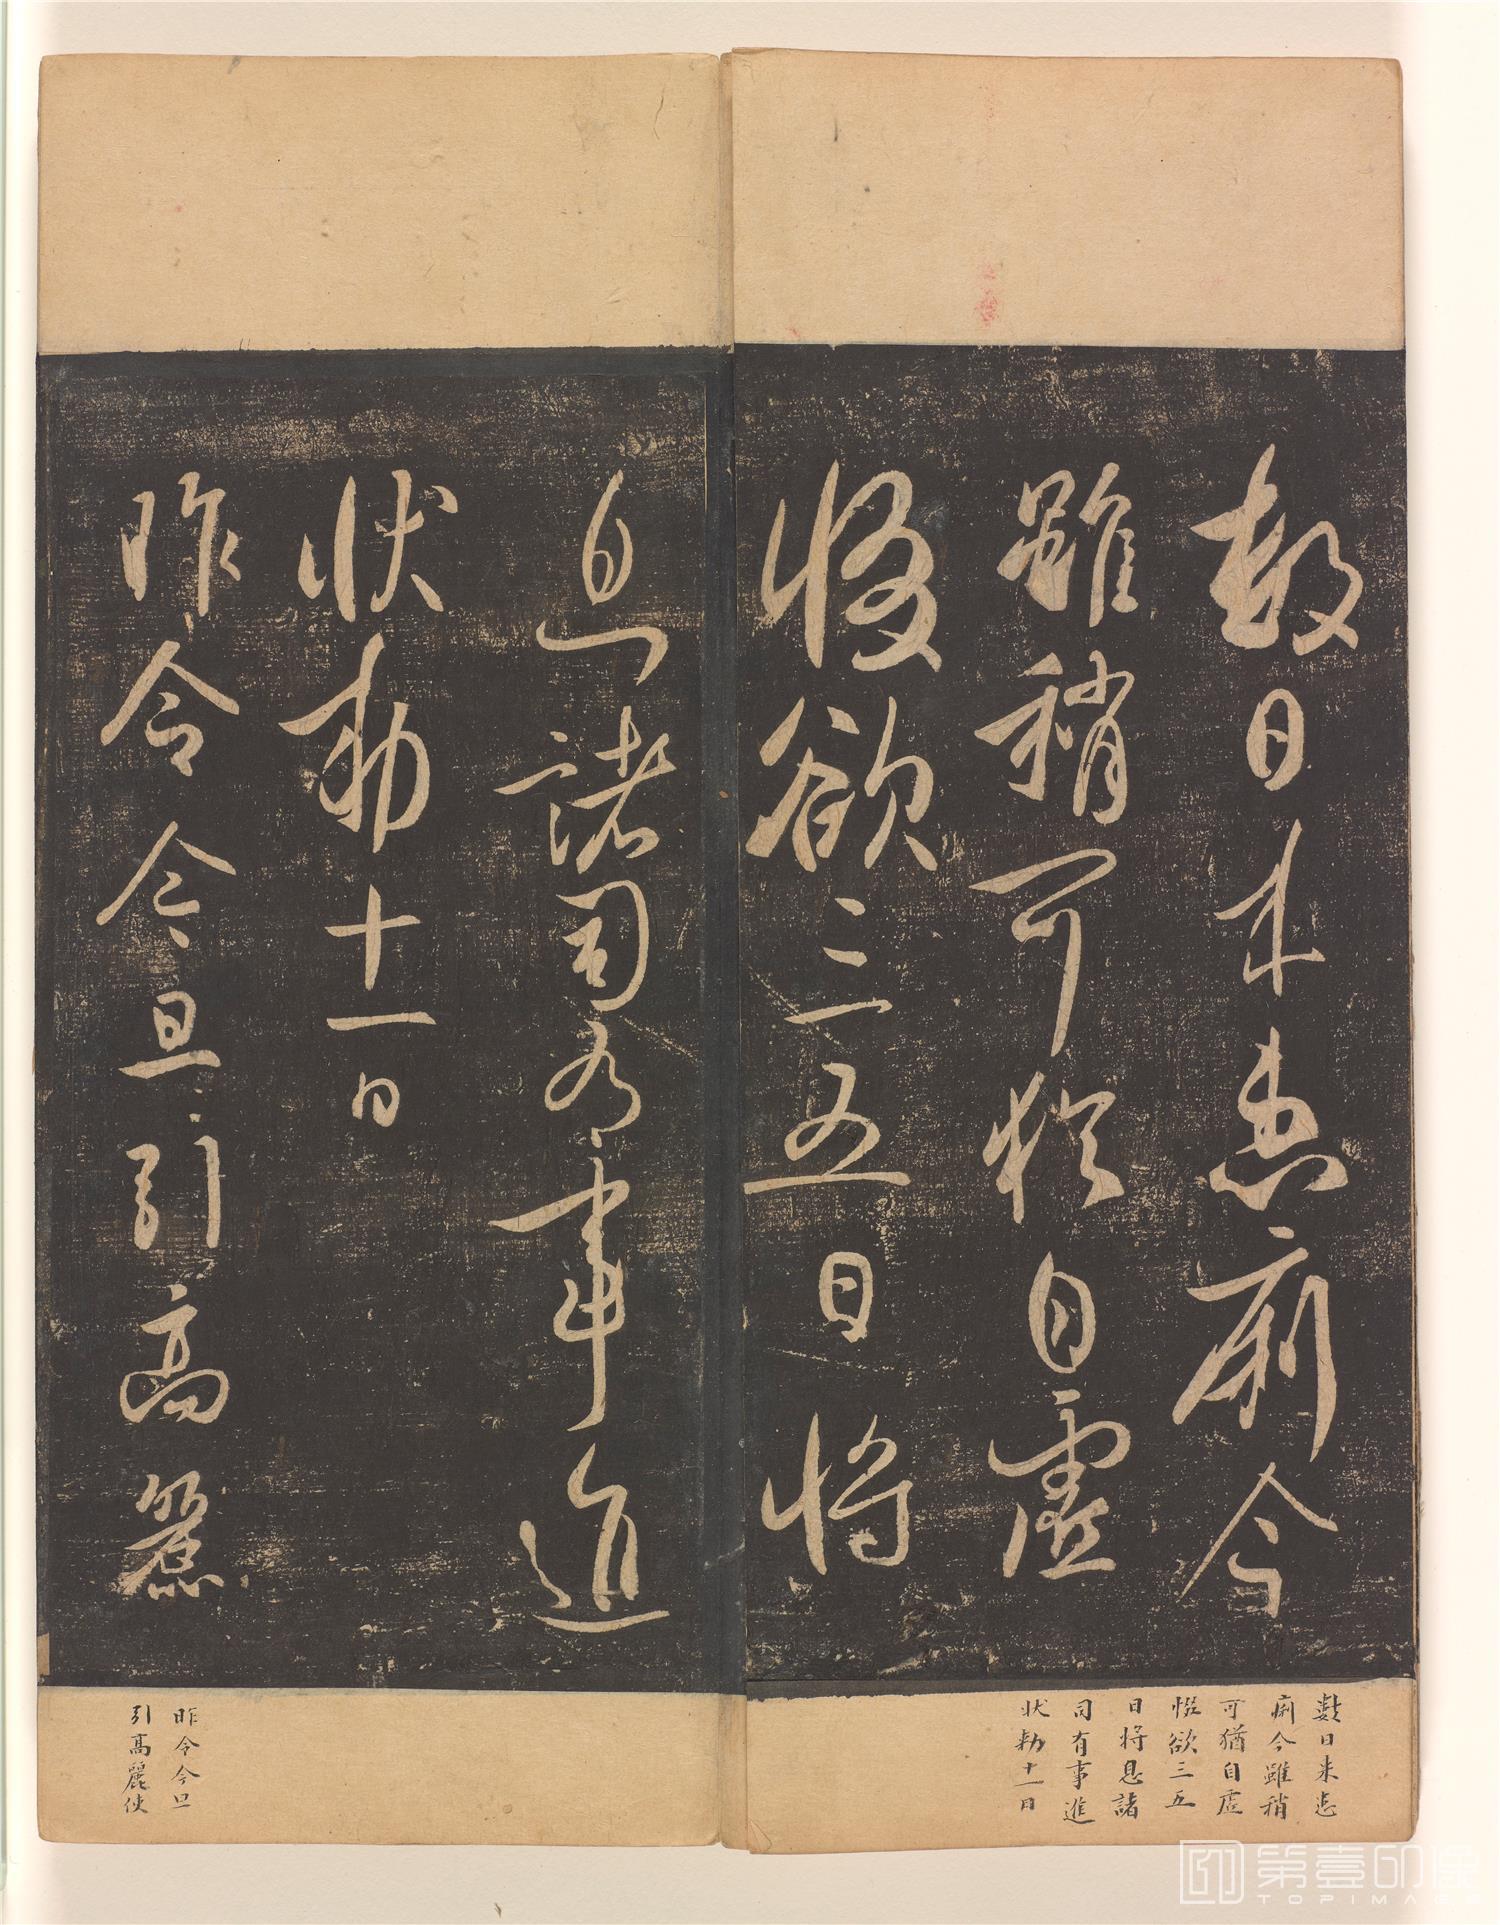 數日來患痢今
雖稍可猶自虛
惙欲三五日將
息諸司有事進
狀勅十一日
昨令今旦引高麗
數日来患
痢今雖稍
可猶自虛
惙欲三五
日将息諸
司有事進
状勅十一日
昨令今旦
引髙麗使
第壹印像
TOPIMAGE